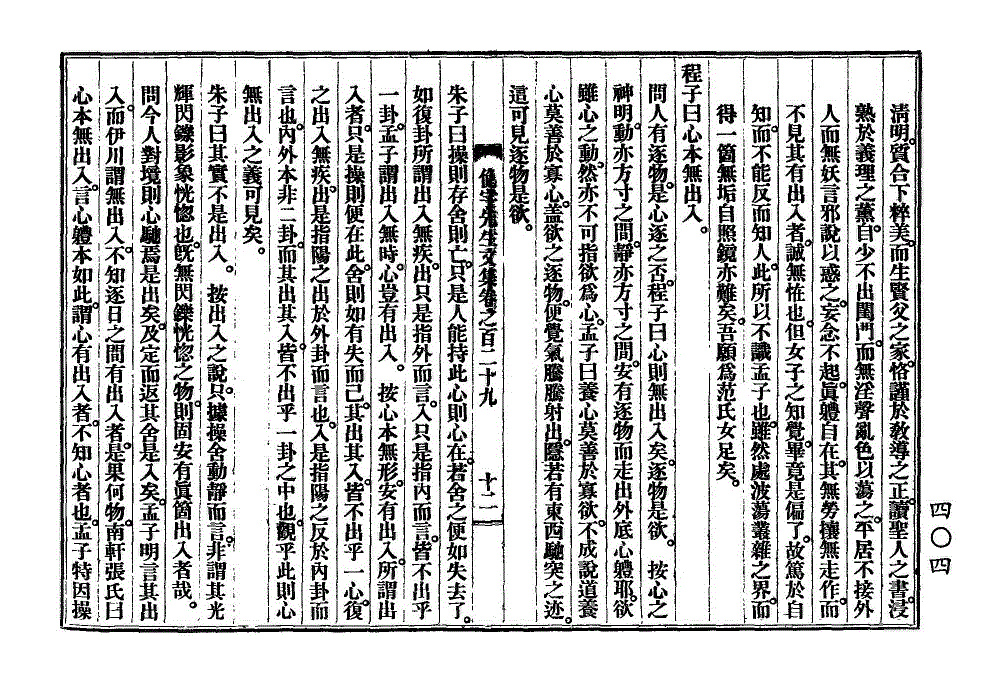 清明。質合下粹美。而生賢父之家。恪謹於敎導之正。讀聖人之書。浸
熟於義理之薰。自少不出閨門。而無淫聲亂色以蕩之。平居不接外
人。而無妖言邪說以惑之。妄念不起。眞軆自在。其無勞攘無走作。而
不見其有出入者。誠無恠也。但女子之知覺。畢竟是偏了。故篤於自
知。而不能反而知人。此所以不識孟子也。雖然。處波蕩叢雜之界。而
得一箇無垢自照鏡亦難矣。吾願爲范氏女足矣。
程子曰心本無出入。
問人有逐物。是心逐之否。程子曰心則無出入矣。逐物是欲。 按心之
神明。動亦方寸之間。靜亦方寸之間。安有逐物而走出外底心軆耶。欲
雖心之動。然亦不可指欲爲心。孟子曰養心莫善於寡欲。不成說道養
心莫善於寡心。盖欲之逐物。便覺氣騰騰射出。隱若有東西馳突之迹。
這可見逐物是欲。
俛宇先生文集卷之百二十九 十二
朱子曰操則存舍則亡。只是人能持此心則心在。若舍之便如失去了。
如復卦所謂出入無疾。出只是指外而言。入只是指內而言。皆不出乎
一卦。孟子謂出入無時。心豈有出入。 按心本無形。安有出入。所謂出
入者。只是操則便在此。舍則如有失而已。其出其入。皆不出乎一心。復
之出入無疾。出是指陽之出於外卦而言也。入是指陽之反於內卦而
言也。內外本非二卦。而其出其入。皆不出乎一卦之中也。觀乎此則心
無出入之義可見矣。
朱子曰其實不是出入。 按出入之說。只據操舍動靜而言。非謂其光
輝閃鑠影象恍惚也。旣無閃鑠恍惚之物。則固安有眞箇出入者哉。
問今人對境則心馳焉。是出矣。及定而返其舍是入矣。孟子明言其出
入。而伊川謂無出入。不知逐日之間有出入者。是果何物。南軒張氏曰
心本無出入。言心軆本如此。謂心有出入者。不知心者也。孟子特因操
四〇四